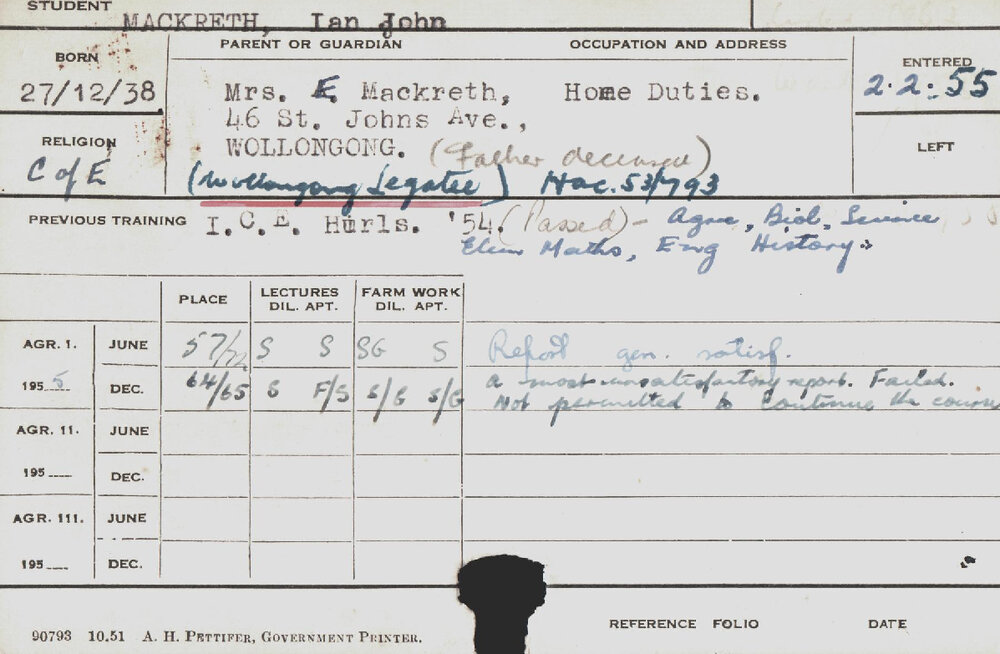 STUDENT MACKRETH, Ian John
BORN PARENT OR GUARDIAN OCCUPATION AND ADDRESS ENTERED
27/12/38 Mrs. E. Mackreth, Home Duties. 2.2.55
46 St. Johns Ave.,
RELIGION WOLLONGONG. (Father deceased) LEFT
C of E (Wollongong Legatee) Hac. 53/793
PREVIOUS TRAINING I.C.E. Hurls. '54. (Passed) - Agric, Biol, Science
Elem Maths, Eng History.
PLACE LECTURES FARM WORK
DIL. APT. DIL. APT.
AGR. 1. JUNE 57/72 S S SG S Report gen. satisf.
1955 DEC. 64/65 S F/S S/G S/G A most unsatisfactory report. Failed.
Not permitted to continue the course
AGR. 11. JUNE
195 DEC.
AGR. 111. JUNE
195 DEC.
REFERENCE FOLIO DATE
90793 10.51 A. H. PETTIFER, GOVERNMENT PRINTER.